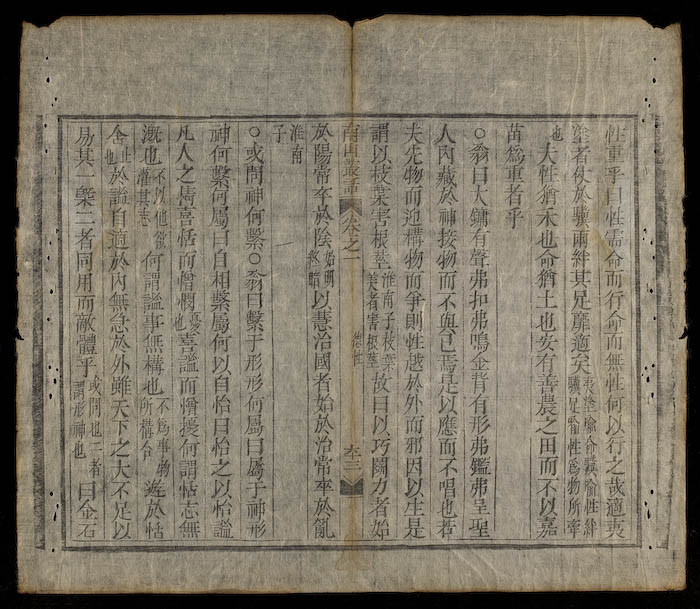 性重乎曰性需命而行命而無性何以行之哉適夷
塗者伏於驥兩絆其足靡適矣夷塗喻命驥喻性絆驥足喻性爲物所牽
也夫性猶禾也命猶土也安有善農之田而不以嘉
苗爲重者乎
○翁曰大鏞有聲弗扣弗鳴金背有形弗鑑弗呈聖
人內藏於神接物而不與己焉是以應而不唱也若
夫先物而迎構物而爭則性越於外而邪因以生是
謂以枝葉害根莖淮南子枝葉美者害根莖故曰以巧鬬力者始
南山叢話 卷之一 李三
於陽常卒於陰始明終晦以慧治國者始於治常卒於亂
淮南子
○或問神何繫○翁曰繫于形形何屬曰屬于神形
神何繫何屬曰自相繫屬何以自怡曰怡之以恰謐
凡人之情喜恬而憎惘憂也喜謐而憎擾何謂恬志無
溉也不以也欲灌其志何謂謐事無構也不爲事物所構合遊於恬
舍止也於謐自適於內無急於外雖天下之大不足以
易其一槩二者同用而敵體乎或問也二者謂形神也曰金石